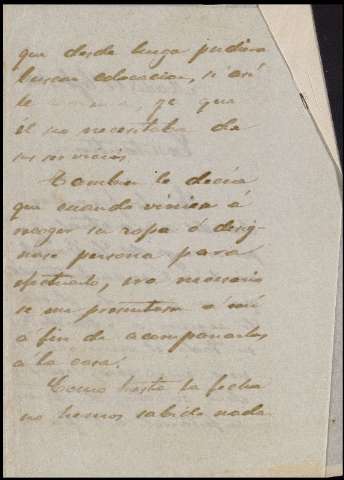 que desde luego pudiera
buscar colocacion, si así
le ya que
él no necesitaba de
sus servicios.
Tambien le decía
que cuando viniera á
recoger su ropa ó desig-
nase persona para
efectuarlo, era necesario
se me presentara á mí
á fin de acompañarlos
á la casa.
Como hasta la fecha
no hemos sabido nada